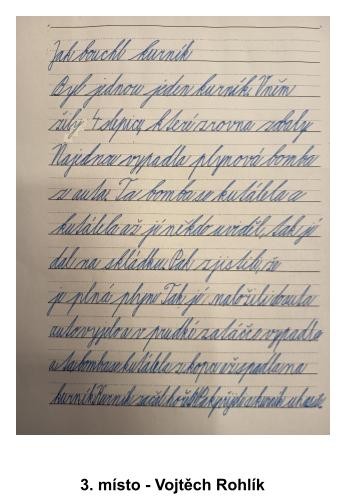 Jak bouchl kurník
Byl jednou jeden kurník. V něm
žily 4 slepice, které zrovna zobaly
Najednou vypadla plynová bomba
z auta. Ta bomba se kutálela a
kutálela až jí někdo uviděl, tak jí
dal na skládku. Pak zjistili, že
je plná plynu. Tak jí naložili do auta
auto vyjelo a v prudké zatáčce vypadla
a ta bomba se kutálela z kopce a spadla na
kurník. Kurník začal hořet. Pak přijeli a
3. místo - Vojtěch Rohlík